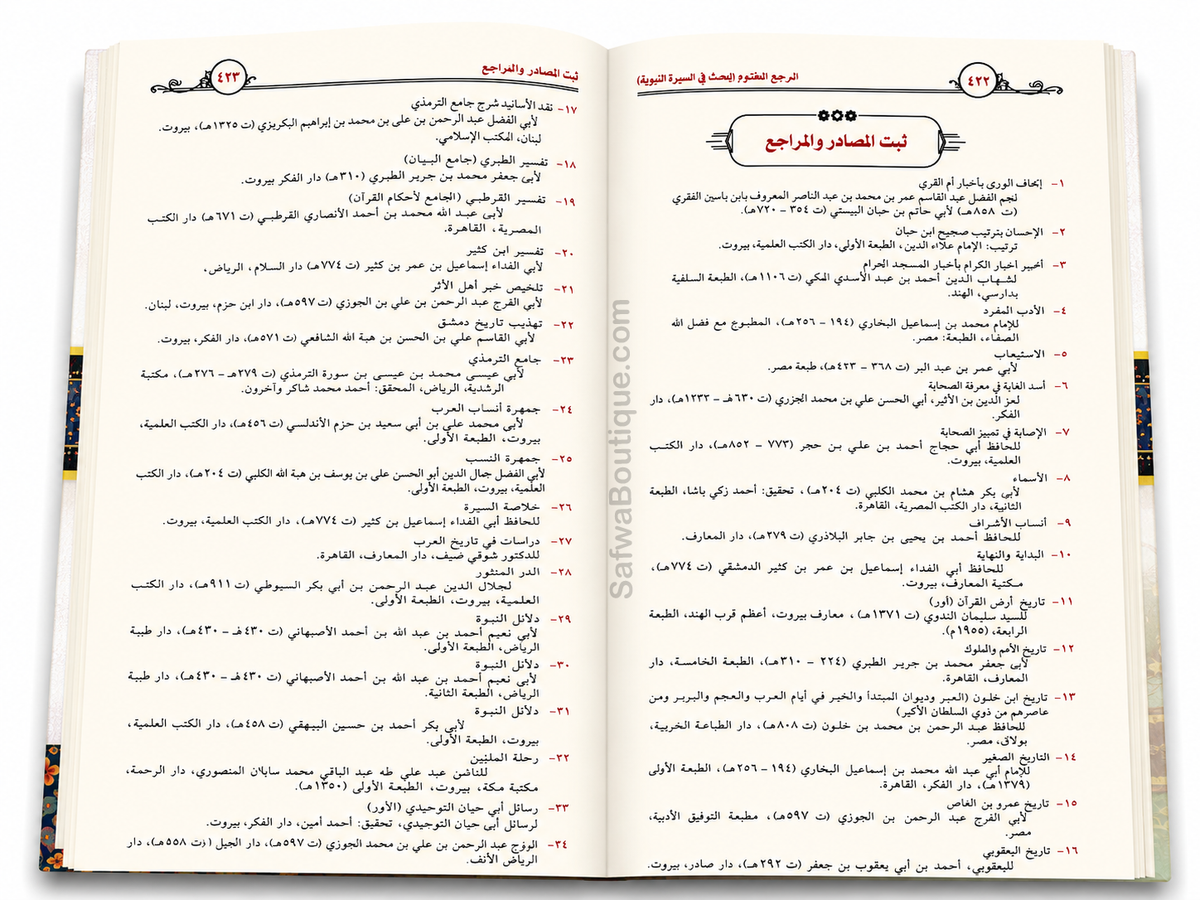 ٤٢٢
ثبت المصادر والمراجع
١- إتحاف الورى بأخبار أم القرى
لنجم الفضل عبد القاسم عمر بن محمد بن عبد الناصر المعروف بابن ياسين الفقري
(ت ٨٥٨هـ) لأبي حاتم بن حبان البيستي (ت ٣٥٤ – ٧٢٠هـ).
٢- الإحسان بترتيب صحيح ابن حبان
ترتيب: الإمام علاء الدين، الطبعة الأولى، دار الكتب العلمية، بيروت.
٣- أخبر اخبار الكرام بأخبار المسجد الحرام
لشهاب الدين أحمد بن عبد الأسدي المكي (ت ١١٠٦هـ)، الطبعة السلفية
بدارسي، الهند.
٤- الأدب المفرد
للإمام محمد بن إسماعيل البخاري (١٩٤ – ٢٥٦هـ)، المطبوع مع فضل الله
الصفاء، الطبعة: مصر.
٥- الاستيعاب
لأبي عمر بن عبد البر (ت ٣٦٨ – ٤٢٣هـ)، طبعة مصر.
٦- أسد الغابة في معرفة الصحابة
لعز الدين بن الأثير، أبي الحسن علي بن محمد الجزري (ت ٦٣٠هـ – ١٢٣٢هـ)، دار
الفكر.
٧- الإصابة في تمييز الصحابة
للحافظ أبي حجاج أحمد بن علي بن حجر (٧٧٣ – ٨٥٢هـ)، دار الكتب
العلمية، بيروت.
٨- الأسماء
لأبي بكر هشام بن محمد الكلبي (ت ٢٠٤هـ)، تحقيق: أحمد زكي باشا، الطبعة
الثانية، دار الكتب المصرية، القاهرة.
٩- أنساب الأشراف
للحافظ أحمد بن يحيى بن جابر البلاذري (ت ٢٧٩هـ)، دار المعارف.
١٠- البداية والنهاية
للحافظ أبي الفداء إسماعيل بن عمر بن كثير الدمشقي (ت ٧٧٤هـ)،
مكتبة المعارف، بيروت.
١١- تاريخ أرض القرآن (أور)
للسيد سليمان الندوي (ت ١٣٧١هـ)، معارف بيروت، أعظم قرب الهند، الطبعة
الرابعة، (١٩٥٥م).
١٢- تاريخ الأمم والملوك
لأبي جعفر محمد بن جرير الطبري (٢٢٤ – ٣١٠هـ)، الطبعة الخامسة، دار
المعارف، القاهرة.
١٣- تاريخ ابن خلون (العبر وديوان المبتدأ والخبر في أيام العرب والعجم والبربر ومن
عاصرهم من ذوي السلطان الأكبر)
للحافظ عبد الرحمن بن محمد بن خلون (ت ٨٠٨هـ)، دار الطباعة الخربية،
بولاق، مصر.
١٤- التاريخ الصغير
للإمام أبي عبد الله محمد بن إسماعيل البخاري (١٩٤ – ٢٥٦هـ)، الطبعة الأولى
(١٣٧٩هـ)، دار الفكر، القاهرة.
١٥- تاريخ عمرو بن الغاص
لأبي الفرج عبد الرحمن بن الجوزي (ت ٥٩٧هـ)، مطبعة التوفيق الأدبية،
مصر.
١٦- تاريخ اليعقوبي
لليعقوبي، أحمد بن أبي يعقوب بن جعفر (ت ٢٩٢هـ)، دار صادر، بيروت.
ثبت المصادر والمراجع
٤٢٣
١٧- نقد الأسانيد شرح جامع الترمذي
لأبي الفضل عبد الرحمن بن علي بن محمد بن إبراهيم البكريزي (ت ١٣٢٥هـ)، بيروت.
لبنان، المكتب الإسلامي.
١٨- تفسير الطبري (جامع البيان)
لأبي جعفر محمد بن جرير الطبري (٣١٠هـ) دار الفكر بيروت.
١٩- تفسير القرطبي (الجامع لأحكام القرآن)
لأبي عبد الله محمد بن أحمد الأنصاري القرطبي (ت ٦٧١هـ) دار الكتب
المصرية، القاهرة.
٢٠- تفسير ابن كثير
لأبي الفداء إسماعيل بن عمر بن كثير (ت ٧٧٤هـ) دار السلام، الرياض،
٢١- تلخيص خبر أهل الأثر
لأبي الفرج عبد الرحمن بن علي بن الجوزي (ت ٥٩٧هـ)، دار ابن حزم، بيروت، لبنان.
٢٢- تهذيب تاريخ دمشق
لأبي القاسم علي بن الحسن بن هبة الله الشافعي (ت ٥٧١هـ)، دار الفكر، بيروت.
٢٣- جامع الترمذي
لأبي عيسى محمد بن عيسى بن سورة الترمذي (ت ٢٧٩هـ – ٢٧٦هـ)، مكتبة
الرشدية، الرياض، المحقق: أحمد محمد شاكر وآخرون.
٢٤- جمهرة أنساب العرب
لأبي محمد علي بن أبي سعيد بن حزم الأندلسي (ت ٤٥٦هـ)، دار الكتب العلمية،
بيروت، الطبعة الأولى.
٢٥- جمهرة النسب
لأبي الفضل جمال الدين أبو الحسن علي بن يوسف بن هبة الله الكلبي (ت ٢٠٤هـ)، دار الكتب
العلمية، بيروت، الطبعة الأولى.
٢٦- خلاصة السيرة
للحافظ أبي الفداء إسماعيل بن كثير (ت ٧٧٤هـ)، دار الكتب العلمية، بيروت.
٢٧- دراسات في تاريخ العرب
للدكتور شوقي ضيف، دار المعارف، القاهرة.
٢٨- الدر المنثور
لجلال الدين عبد الرحمن بن أبي بكر السيوطي (ت ٩١١هـ)، دار الكتب
العلمية، بيروت، الطبعة الأولى.
٢٩- دلائل النبوة
لأبي نعيم أحمد بن عبد الله بن أحمد الأصبهاني (ت ٤٣٠هـ – ٤٣٠هـ)، دار طيبة
الرياض، الطبعة الأولى.
٣٠- دلائل النبوة
لأبي نعيم أحمد بن عبد الله بن أحمد الأصبهاني (ت ٤٣٠هـ – ٤٣٠هـ)، دار طيبة
الرياض، الطبعة الثانية.
٣١- دلائل النبوة
لأبي بكر أحمد بن حسين البيهقي (ت ٤٥٨هـ)، دار الكتب العلمية،
بيروت، الطبعة الأولى.
٣٢- رحلة الملبّين
للناضن عبد علي طه عبد الباقي محمد سابلان المنصوري، دار الرحمة،
مكتبة مكة، بيروت، الطبعة الأولى (١٣٥٠هـ).
٣٣- رسائل أبي حيان التوحيدي (الأور)
لرسائل أبي حيان التوجيدي، تحقيق: أحمد أمين، دار الفكر، بيروت.
٣٤- الووج عبد الرحمن بن علي بن محمد الجوزي (ت ٥٩٧هـ)، دار الجيل (ت ٥٥٨هـ)، دار
الرياض الأنف.
SafwaBoutique.com